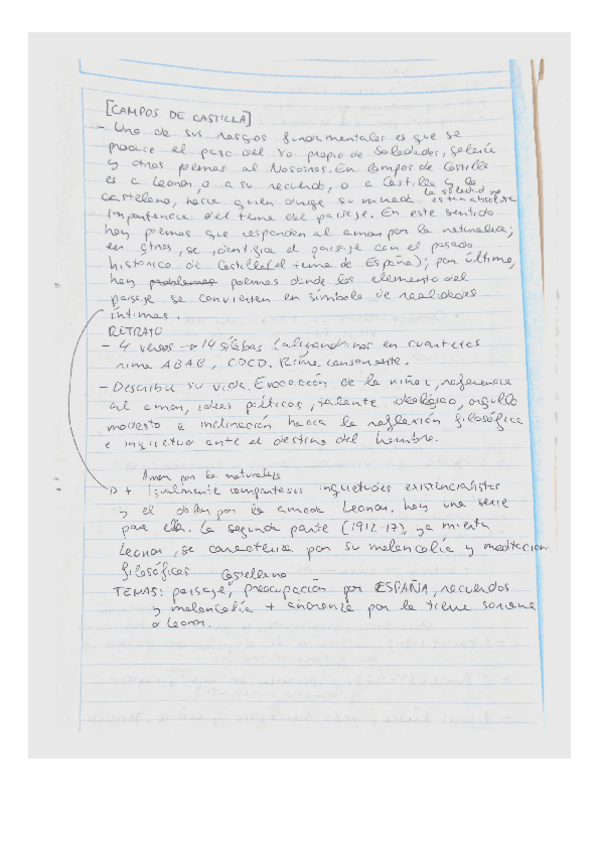 [CAMPOS DE CASTILLA]
- Uno de sus rasgos fundamentales es que se
produce el paso del Yo propio de Soledades, galería
y otros poemas al Nosotros. En Campos de Castilla
es a Leonor, o a su recuerdo, o a Castilla y lo
castellano, hacia quien dirige su mirada. la soledad no es tan absoluta
Importancia del tema del paisaje. En este sentido
hay poemas que responden al amor por la naturaleza;
en otros, se identifica el paisaje con el pasado
histórico de Castilla (el tema de España); por último,
hay problemas poemas donde los elemento del
paisaje se convierten en símbolo de realidades
íntimas.
RETRATO
- 4 versos → 14 sílabas (alejandrinos en cuartetos
rima ABAB, CDCD. Rima consonante.
- Describir su vida. Evocación de la niñez, referencia
al amor, ideas políticas, talante ideológico, orgullo
modesto e inclinación hacia la reflexión filosófica
e inquietud ante el destino del hombre.
Amor por la naturaleza
+ Igualmente inquietudes existencialistas
y el dolor por la amada Leonor. hay una serie
para ella. La segunda parte (1912-17), ya muerta
Leonor, se caracteriza por su melancolía y meditación
filosóficas
castellano
TEMAS: paisaje, preocupación por ESPAÑA, recuerdos
y melancolía + añoranza por la tierra soriana
a Leonor.